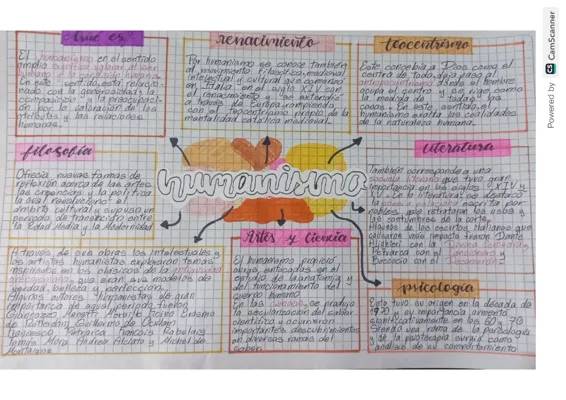 Qué es
El humanismo en el sentido
amplio significa valorar el
humano y la condición humana.
En este sentido, está relacio-
nado con la generosidad, la
compasión y la preocupaci-
ón por la valoración de los
atributos y las relaciones
humanas.
renacimiento
Por humanismo se conoce también
al movimiento filosófico, medieval
intelectual y cultural que comenzó
en Italia en el siglo XIV con
el renacimiento y se extendió
a través de Europa, rompiendo
con el teocentrismo propio de la
mentalidad católica medieval.
teocentrismo
Este concebía a Dios como el
centro de todo, deja paso al
donde el hombre
ocupa el centro y se erige como
la medida de todas las
cosas. En este sentido, el
humanismo exalta las cualidades
de la naturaleza humana.
filosofía
Ofrecía nuevas formas de
reflexión acerca de las artes,
las ciencias y la política
lo cual revolucionó el
ámbito cultural y supuso un
periodo de transición entre
la Edad Media y la Modernidad
humanismo
literatura
También corresponde a una
que tuvo gran
importancia en los siglos XIV y
XV. En la literatura se destaca
la escrita por
nobles que retrataban los usos y
las costumbres de la corte.
Algunos de los escritos italianos que
causaron más impacto fueron Dante
Alighieri con la Divina Comedia,
Petrarca con el Cancionero y
Bocaccio con el
A través de sus obras los intelectuales y
los artistas humanistas exploraron temas
inspirados en los clásicos de la antigüedad
que eran sus modelos de
verdad, belleza y perfección.
Algunos autores humanistas de gran
importancia de aquel periodo fueron
Giannozzo Manetti, Marsilio Ficino, Erasmo
de Rotterdam, Guillermo de Ockham,
Francesco Petrarca, François Rabelais,
Tomás Moro, Andrea Alciato y Michel de
Montaigne.
Artes y Ciencia
El humanismo propició
obras enfocadas en el
estudio de la anatomía y
del funcionamiento del
cuerpo humano.
En las ciencias, se produjo
la secularización del saber
científico y ocurrieron
importantes descubrimientos
en diversas ramas del
saber.
psicología
Esta tuvo su origen en la década de
1950 y su importancia aumentó
significativamente en los 60 y 70.
Siendo una rama de la psicología
y de la psicoterapia surgió como
análisis de su comportamiento
Powered by CS CamScanner